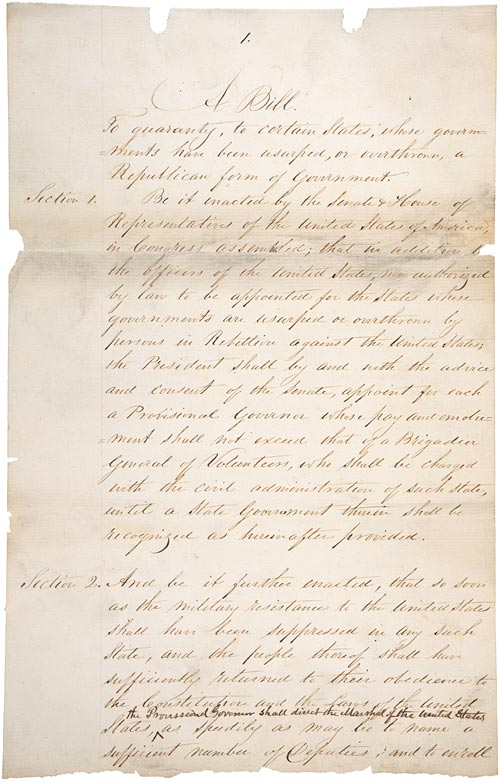 1.
A Bill.
To guaranty, to certain States, whose govern=
=ments have been usurped, or overthrown, a
Republican form of Government.
Section 1. Be it enacted by the Senate & House of
Representatives of the United States of America,
in Congress assembled; that in addition to
the officers of the United States, now authorized
by law to be appointed for the States whose
governments are usurped or overthrown by
persons in Rebellion against the United States;
the President shall by and with the advice
and consent of the Senate, appoint for each
a Provisional Governor whose pay and emolu=
=ment shall not exceed that of a Brigadier
General of Volunteers, who shall be charged
with the civil administration of such State,
until a State Government therein shall be
recognized as hereinafter provided.
Section 2. And be it further enacted, that so soon
as the military resistance to the United States
shall have been suppressed in any such
State, and the people thereof shall have
sufficiently returned to their obedience to
the Constitution and the Laws of the United
the Provisional Governor shall direct the Marshal of the United States
States, as speedily as may be to name a
sufficient number of Deputies; and to enroll